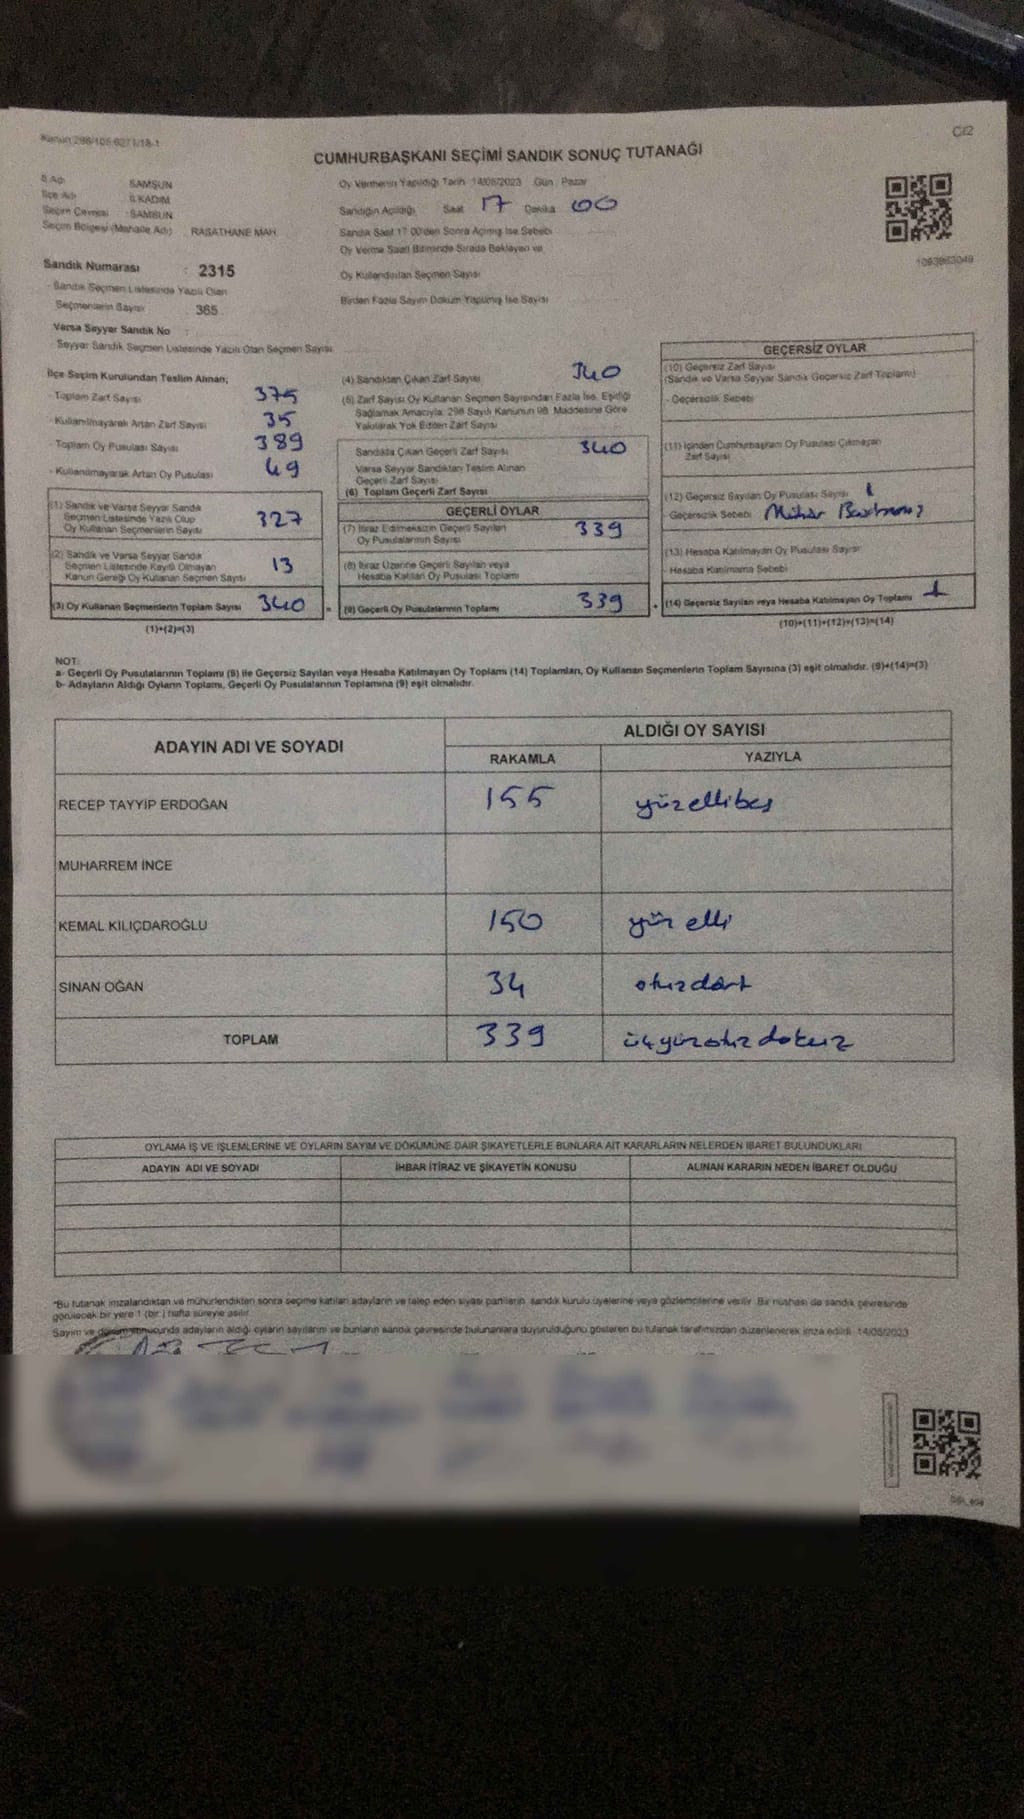 Kanun 298/105 6271/18-1
C/2
CUMHURBAŞKANI SEÇİMİ SANDIK SONUÇ TUTANAĞI
İl Adı SAMSUN
İlçe Adı İLKADIM
Seçim Çevresi : SAMSUN
Seçim Bölgesi (Mahalle Adı) : RASATHANE MAH.
Sandık Numarası : 2315
- Sandık Seçmen Listesinde Yazılı Olan
Seçmenlerin Sayısı 365
Varsa Seyyar Sandık No :
Seyyar Sandık Seçmen Listesinde Yazılı Olan Seçmen Sayısı
Oy Vermenin Yapıldığı Tarih : 14/05/2023 Gün : Pazar
Sandığın Açıldığı Saat 17 Dakika 00
Sandık Saat 17:00'den Sonra Açılmış İse Sebebi
Oy Verme Saati Bitiminde Sırada Bekleyen ve
Oy Kullandırılan Seçmen Sayısı
Birden Fazla Sayım Döküm Yapılmış İse Sayısı
1093863049
İlçe Seçim Kurulundan Teslim Alınan;
- Toplam Zarf Sayısı 375
- Kullanılmayarak Artan Zarf Sayısı 35
- Toplam Oy Pusulası Sayısı 389
- Kullanılmayarak Artan Oy Pusulası 49
(1) Sandık ve Varsa Seyyar Sandık
Seçmen Listesinde Yazılı Olup
Oy Kullanan Seçmenlerin Sayısı 327
(2) Sandık ve Varsa Seyyar Sandık
Seçmen Listesinde Kayıtlı Olmayan
Kanun Gereği Oy Kullanan Seçmen Sayısı 13
(3) Oy Kullanan Seçmenlerin Toplam Sayısı 340 =
(1)+(2)=(3)
(4) Sandıktan Çıkan Zarf Sayısı 340
(5) Zarf Sayısı Oy Kullanan Seçmen Sayısından Fazla İse, Eşitliği
Sağlamak Amacıyla; 298 Sayılı Kanunun 98. Maddesine Göre
Yakılarak Yok Edilen Zarf Sayısı
Sandıkta Çıkan Geçerli Zarf Sayısı 340
Varsa Seyyar Sandıktan Teslim Alınan
Geçerli Zarf Sayısı
(6) Toplam Geçerli Zarf Sayısı
GEÇERLİ OYLAR
(7) İtiraz Edilmeksizin Geçerli Sayılan
Oy Pusulalarının Sayısı 339
(8) İtiraz Üzerine Geçerli Sayılan veya
Hesaba Katılan Oy Pusulası Toplamı
(9) Geçerli Oy Pusulalarının Toplamı 339 +
GEÇERSİZ OYLAR
(10) Geçersiz Zarf Sayısı
(Sandık ve Varsa Seyyar Sandık Geçersiz Zarf Toplamı)
- Geçersizlik Sebebi
(11) İçinden Cumhurbaşkanı Oy Pusulası Çıkmayan
Zarf Sayısı
(12) Geçersiz Sayılan Oy Pusulası Sayısı 1
- Geçersizlik Sebebi Mühür
(13) Hesaba Katılmayan Oy Pusulası Sayısı
- Hesaba Katılmama Sebebi
(14) Geçersiz Sayılan veya Hesaba Katılmayan Oy Toplamı 1
(10)+(11)+(12)+(13)=(14)
NOT:
a- Geçerli Oy Pusulalarının Toplamı (9) ile Geçersiz Sayılan veya Hesaba Katılmayan Oy Toplamı (14) Toplamları, Oy Kullanan Seçmenlerin Toplam Sayısına (3) eşit olmalıdır. (9)+(14)=(3)
b- Adayların Aldığı Oyların Toplamı, Geçerli Oy Pusulalarının Toplamına (9) eşit olmalıdır.
ADAYIN ADI VE SOYADI ALDIĞI OY SAYISI
RAKAMLA YAZIYLA
RECEP TAYYİP ERDOĞAN 155 yüzellibeş
MUHARREM İNCE
KEMAL KILIÇDAROĞLU 150 yüz elli
SİNAN OĞAN 34 otuzdört
TOPLAM 339 üçyüzotuz dokuz
OYLAMA İŞ VE İŞLEMLERİNE VE OYLARIN SAYIM VE DÖKÜMÜNE DAİR ŞİKAYETLERLE BUNLARA AİT KARARLARIN NELERDEN İBARET BULUNDUKLARI
ADAYIN ADI VE SOYADI İHBAR İTİRAZ VE ŞİKAYETİN KONUSU ALINAN KARARIN NEDEN İBARET OLDUĞU
*Bu tutanak imzalandıktan ve mühürlendikten sonra seçime katılan adayların ve talep eden siyasi partilerin sandık kurulu üyelerine veya gözlemcilerine verilir. Bir nüshası da sandık çevresinde
görülecek bir yere 1 (bir ) hafta süreyle asılır.
Sayım ve döküm sonucunda adayların aldığı oyların sayılarını ve bunların sandık çevresinde bulunanlara duyurulduğunu gösteren bu tutanak tarafımızdan düzenlenerek imza edildi. 14/05/2023